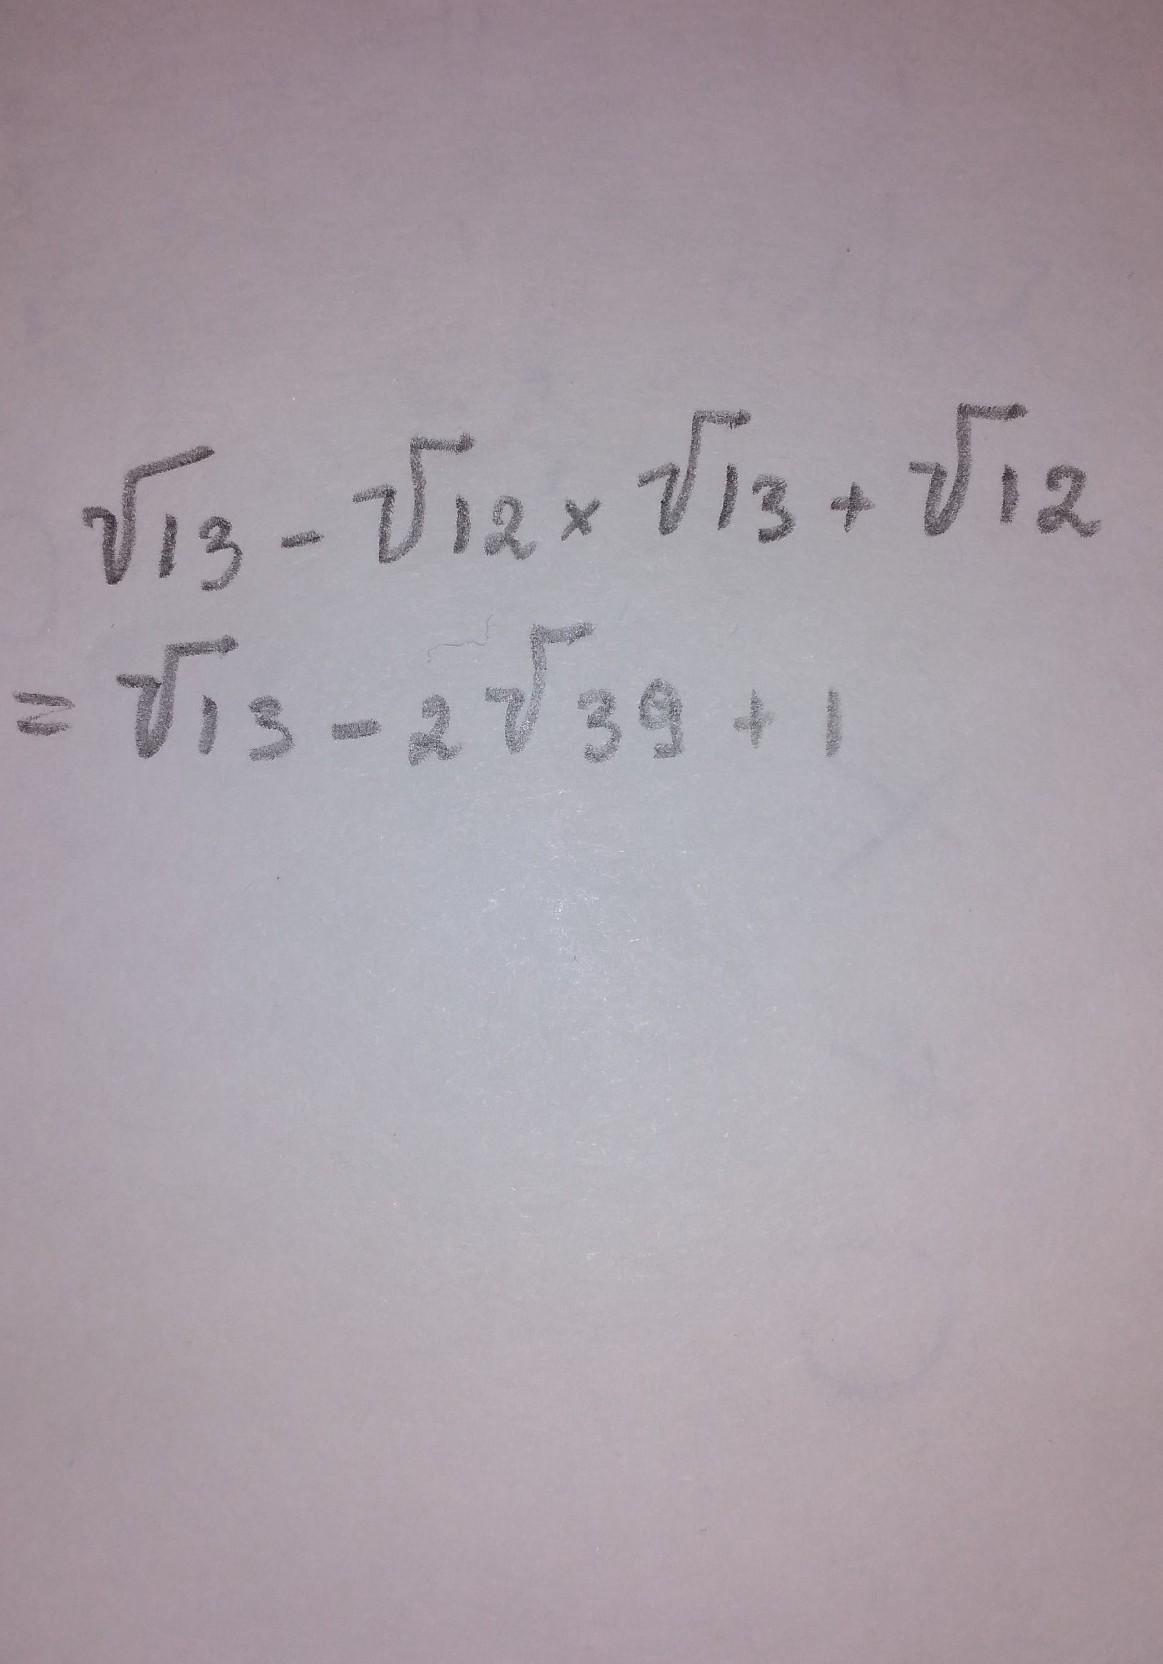 √13 - √12 × √13 + √12
= √13 - 2√39 + 1